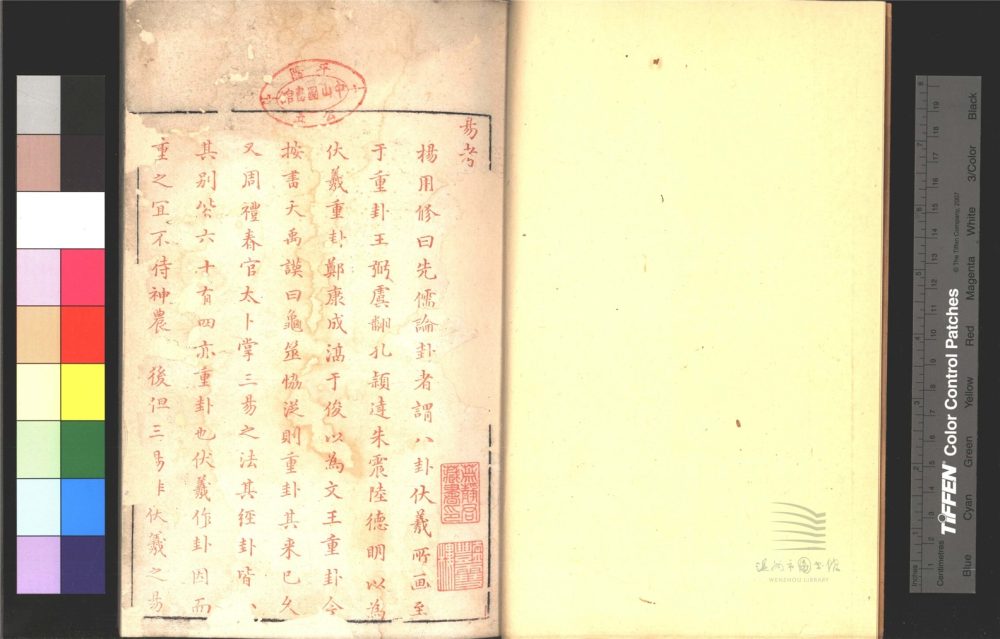 易考
楊用修曰先儒論卦者謂八卦伏羲所画至
于重卦王弼虞翻孔穎達朱震陸德明以為
伏羲重卦鄭康成淳于俊以為文王重卦今
按書大禹謨曰龜筮恊從則重卦其来已久
又周禮春官太卜掌三易之法其經卦皆八
其别皆六十有四亦重卦也伏羲作卦因而
重之冝不待神農 後但三易 伏羲之易
平陽
中山圖書館
藏書印
溫州市図书馆
WENZHOU LIBRARY
TIFFEN Color Control Patches
© The Tiffen Company, 2007
Inches
Centimetres
Blue
Cyan
Green
Yellow
Red
Magenta
White
3/Color
Black